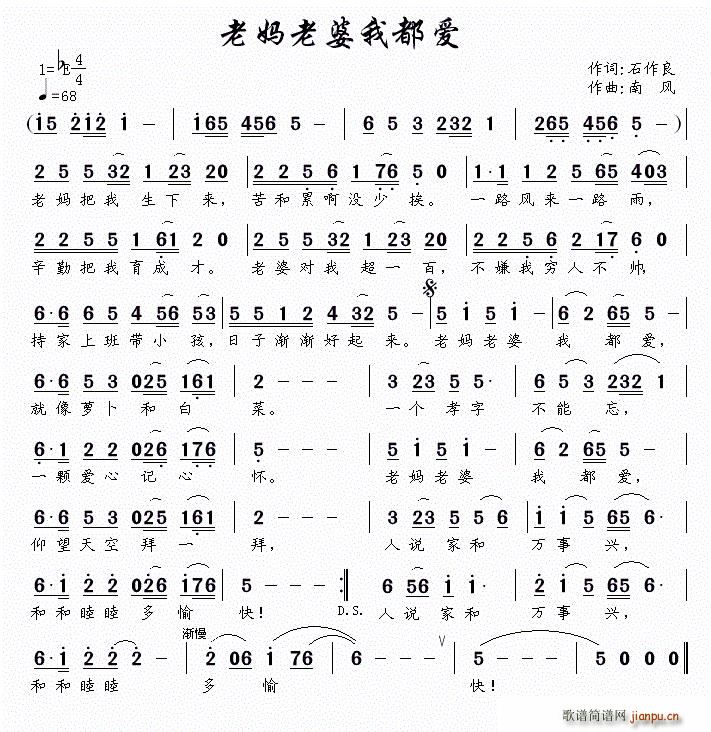 老妈老婆我都爱
1=♭E 4/4
♩=68
作词:石作良
作曲:南 风
(i5 2i2 i - | i65 456 5 - | 6 5 3 232 1 | 265 456 5 - )
2 5 5 32 1 23 20 | 2 2 5 6 1 76 5 0 | 1·1 1 2 5 65 403
老妈把我 生下来, 苦和累啊没少 挨。 一路风来一路 雨,
2 2 5 5 1 61 2 0 | 2 5 5 32 1 23 20 | 2 2 5 6 2 17 6 0
辛勤把我育成 才。 老婆对我 超一百, 不嫌我穷人不帅,
6·6 6 5 4 56 53 | 5 5 1 2 4 32 5 - | 5 i 5 i - | 6 2 65 5 -
持家上班带小孩, 日子渐渐好起 来。 老妈老婆 我 都爱,
6·6 5 3 025 161 | 2 - - - | 3 23 5 5· | 6 5 3 232 1
就像萝卜 和白 菜。 一个孝字 不能 忘,
6·1 2 2 026 176 | 5 - - - | 5 i 5 i - | 6 2 65 5 -
一颗爱心记心 怀。 老妈老婆 我 都爱,
6·6 5 3 025 161 | 2 - - - | 3 23 5 5 6 | i i 65 6·
仰望天空拜一 拜, 人说家和 万事 兴,
6·i 2 2 026 i76 | 5 - - :‖ 6 56 i i· | 2 i 65 6·
和和睦睦 多 愉 快! D.S. 人说家和 万事 兴,
渐慢
6·i 2 2 - | 2 06 i 76 | 6 - - - | 5 - - - | 5 0 0 0 ‖
和和睦睦 多 愉 快!
歌谱简谱网 jianpu.cn